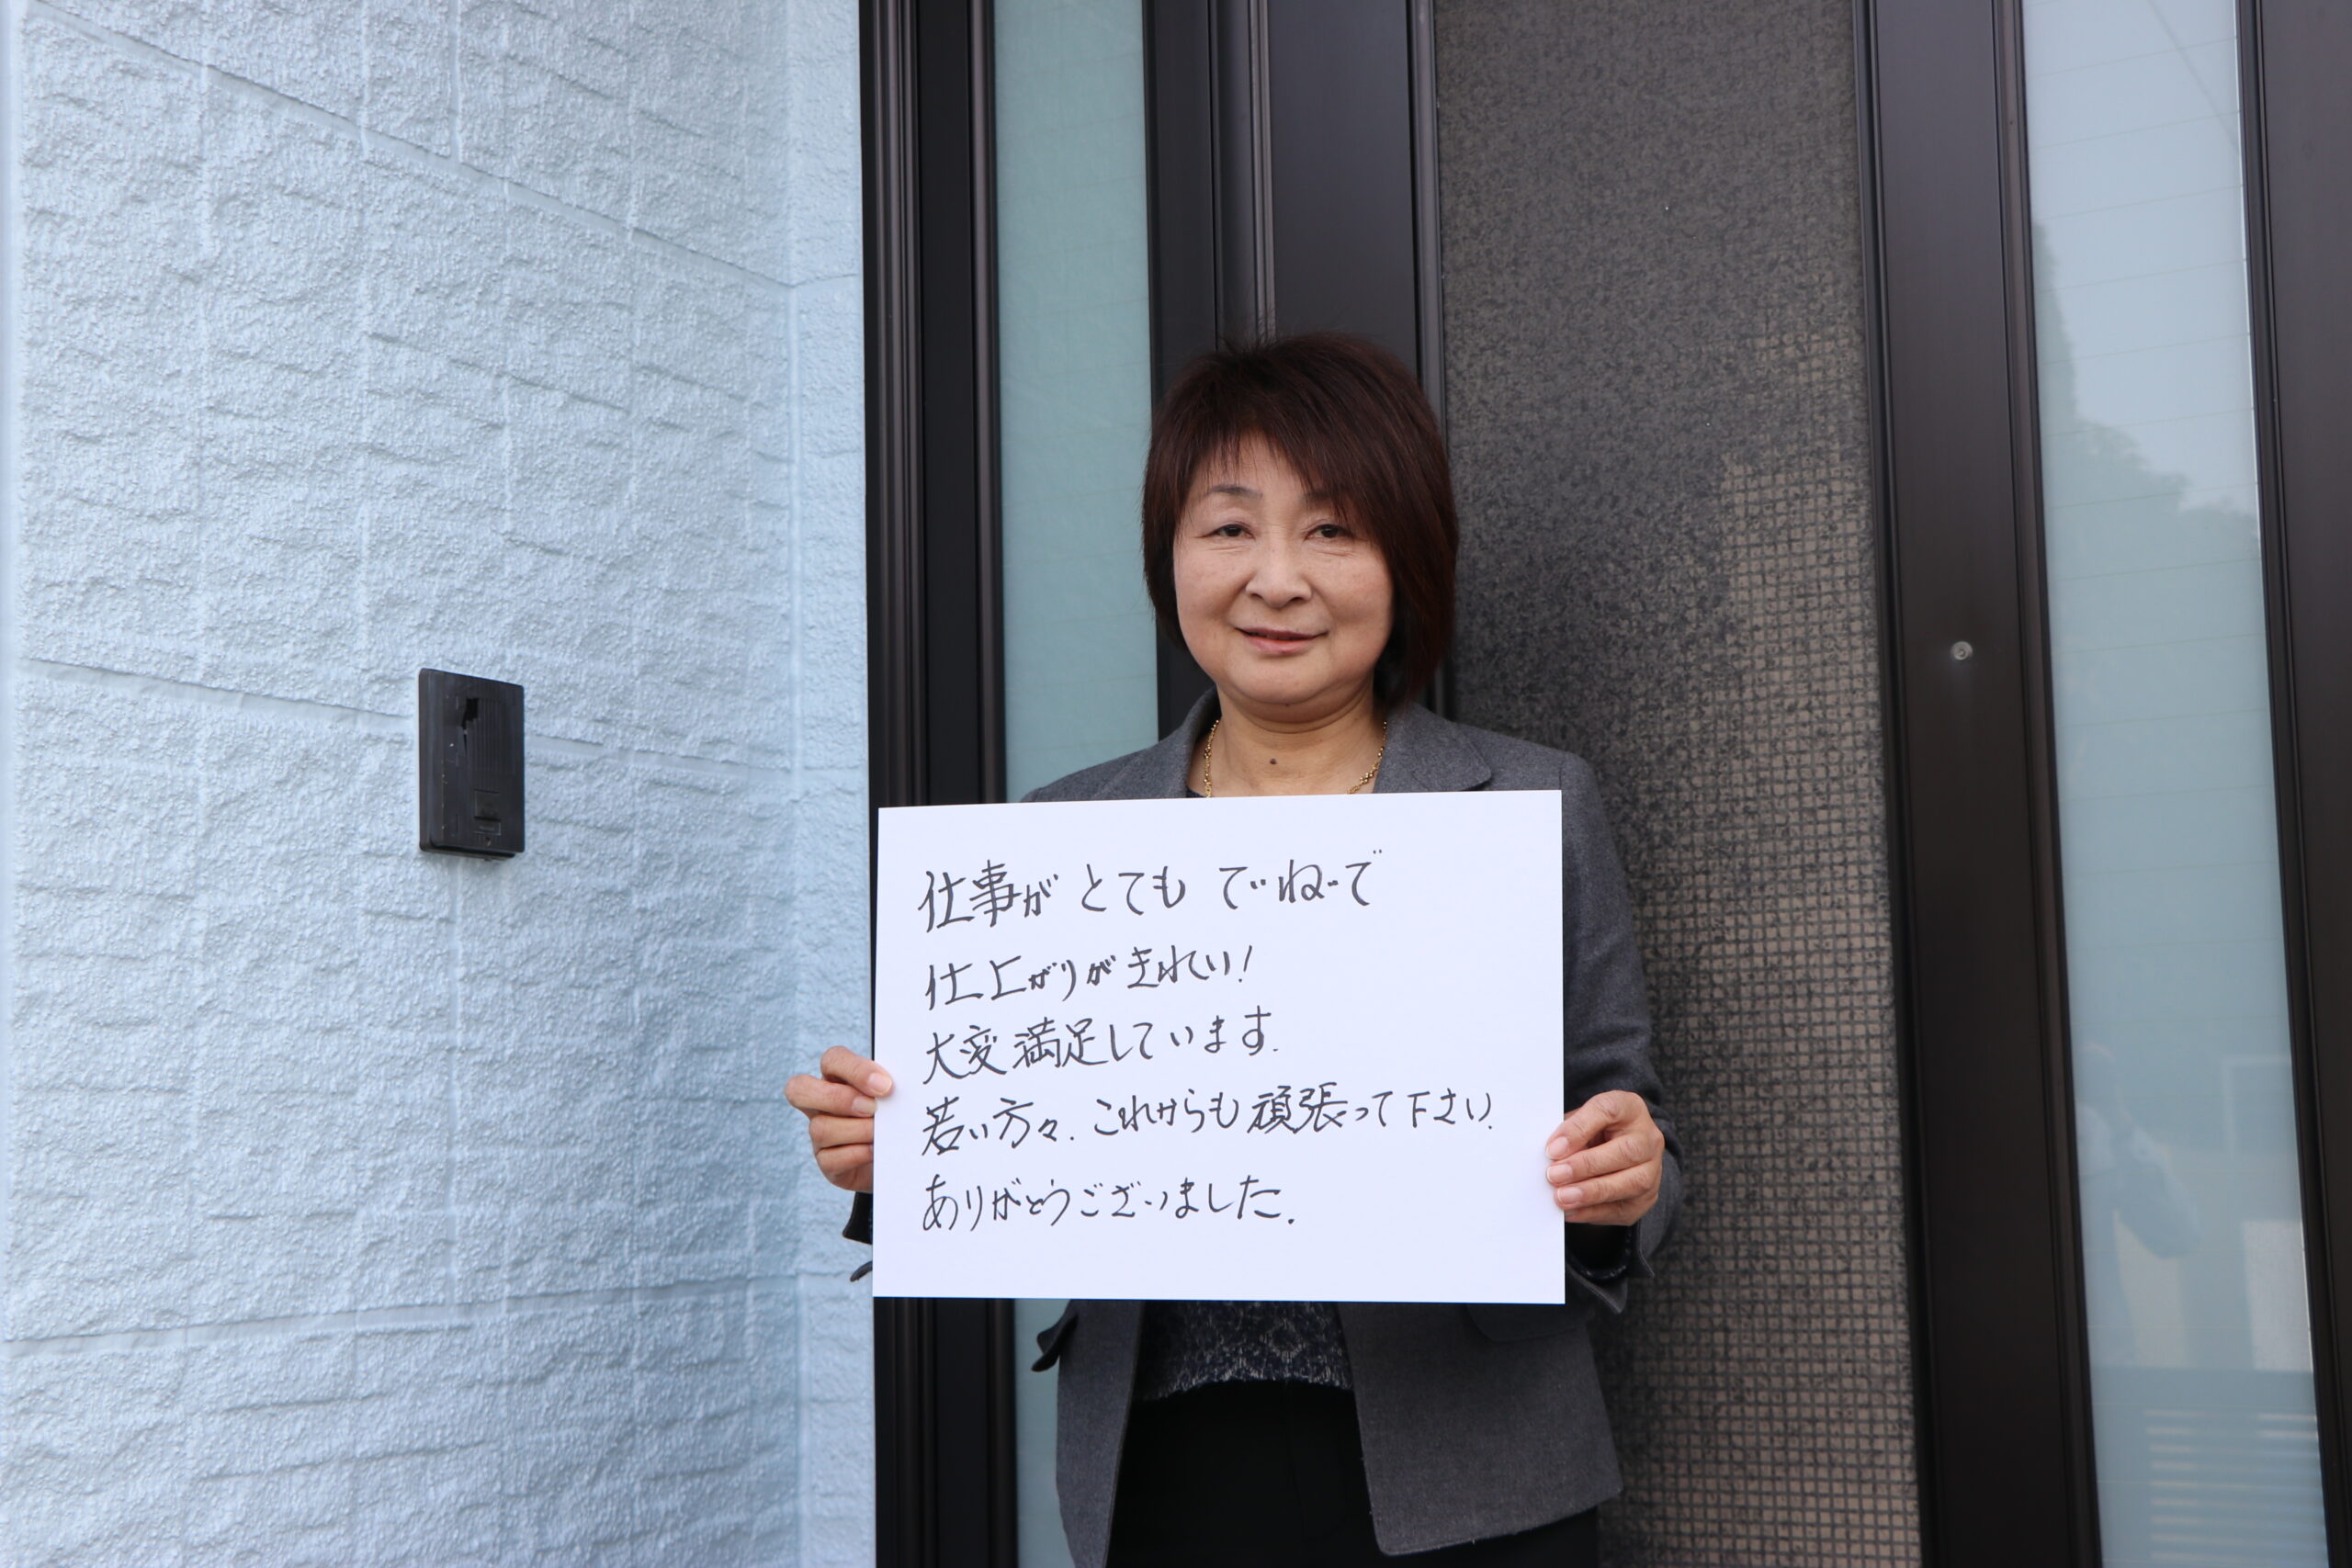 仕事が とても ていねいで
仕上がりがきれい!
大変満足しています.
若い方々.これからも頑張って下さい.
ありがとうございました.